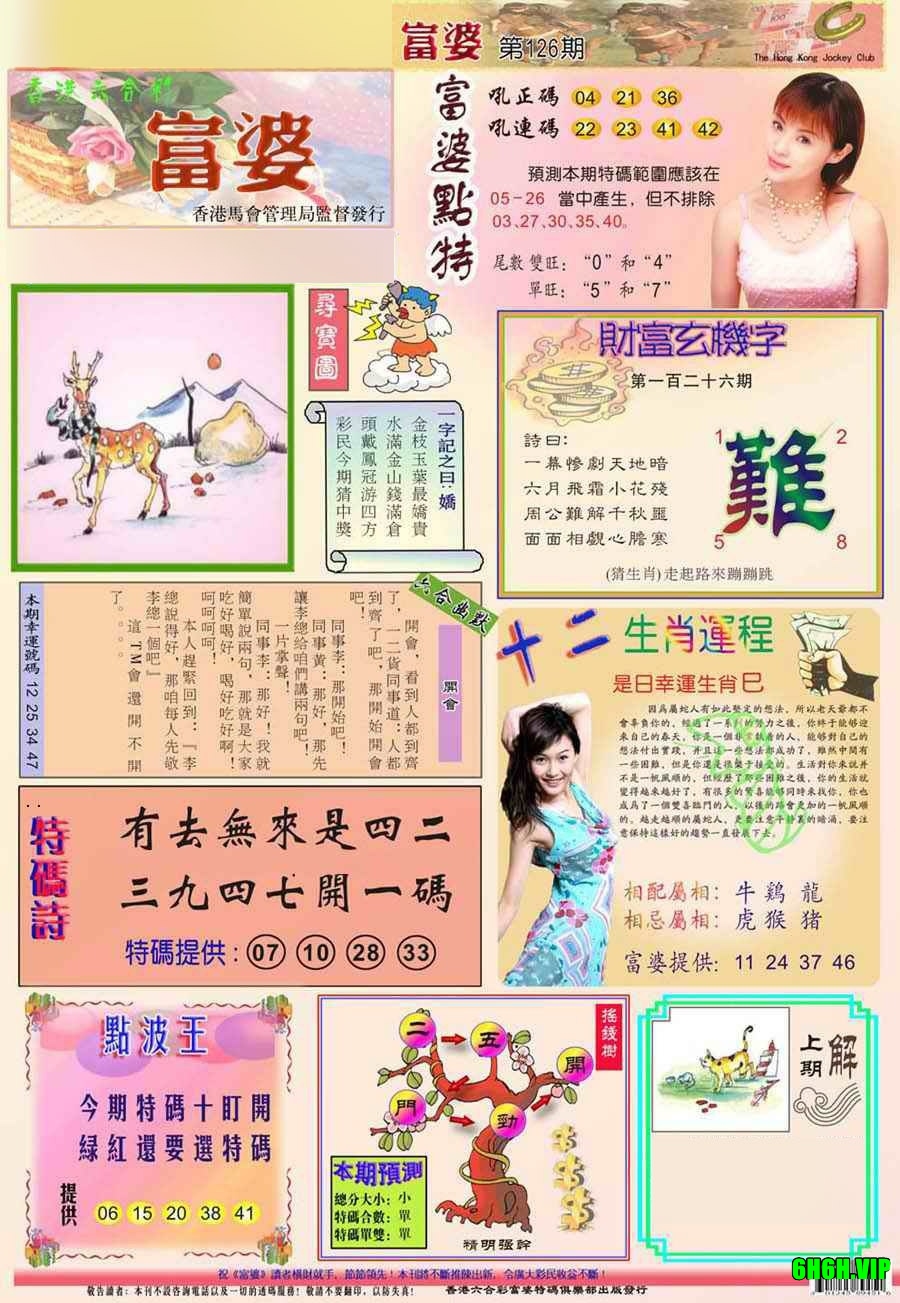 富婆 第126期
The Hong Kong Jockey Club
香港六合彩
富婆
香港馬會管理局監督發行
富婆點特
吼正碼 04 21 36
吼連碼 22 23 41 42
預測本期特碼範圍應該在
05-26 當中產生,但不排除
03、27、30、35、40。
尾數雙旺:“0”和“4”
單旺:“5”和“7”
尋寶圖
一字記之曰:嬌
金枝玉葉最嬌貴
水滿金山錢滿倉
頭戴鳳冠游四方
彩民今期猜中獎
財富玄機字
第一百二十六期
詩曰:
一幕慘劇天地暗
六月飛霜小花殘
周公難解千秋噩
面面相覷心膽寒
1 2
難
5 8
(猜生肖)走起路來蹦蹦跳
六合幽默
開會
開會,看到人都到齊
了,一二貨同事道:人都
到齊了吧,那開始開會
吧!
同事李:那開始吧!
同事黃:那好,那先
讓李總給咱們講兩句吧!
一片掌聲!
同事李:那好!我就
簡單說兩句,那就是大家
吃好喝好,喝好吃好啊!
呵呵呵呵!
本人趕緊回到:『李
總說得好,那咱每人先敬
李總一個吧』
這TM會還開不開
了。。。
本期幸運號碼 12 25 34 47
十二生肖運程
是日幸運生肖巳
因爲屬蛇人有如此堅定的想法,所以老天爺都不
會辜負你的,經過了一系列的努力之後,你終于能够迎
來自己的春天,你是一個非常執着的人,能够對自己的
想法付出實踐,并且這一些想法都成功了,雖然中間有
一些困難,但是你還是很樂于接受的。生活對你來説并
不是一帆風順的,但經歷了那些困難之後,你的生活就
變得越來越好了,有很多的驚喜能够同時來找你,你也
成爲了一個雙喜臨門的人,以後的路會更加的一帆風順
的。越走越順的屬蛇人,更要注意平静裏的暗涌,要注
意保持這樣好的趨勢一直發展下去。
相配屬相: 牛 鷄 龍
相忌屬相: 虎 猴 猪
富婆提供: 11 24 37 46
特碼詩
有去無來是四二
三九四七開一碼
特碼提供: 07 10 28 33
點波王
今期特碼十盯開
緑紅還要選特碼
提供 06 15 20 38 41
搖錢樹
二 五 開
門 勁
本期預測
總分大小: 小
特碼合數: 單
特碼單雙: 單
精明强幹
上期解
祝《富婆》讀者横財就手,節節領先!本刊將不斷推陳出新,令廣大彩民收益不斷!
敬告讀者:本刊不設咨詢電話以及一切的透碼服務!敬請不要翻印,以防失真! 香港六合彩富婆特碼俱樂部出版發行
6H6H.VIP